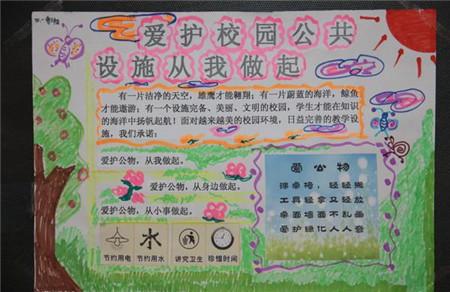 爱护校园公共
设施从我做起
有一片洁净的天空，雄鹰才能翱翔；有一片蔚蓝的海洋，鲸鱼
才能遨游；有一个设施完备、美丽、文明的校园，学生才能在知识
的海洋中扬帆起航！面对越来越美的校园环境，日益完善的教学设
施，我们承诺：
爱护公物，从我做起。
爱护公物，从身边做起。
爱护公物，从小事做起。
节约用电 节约用水 讲究卫生 珍惜时间
爱公物
课桌椅，轻轻搬
工具轻拿又轻放
桌面墙面不乱画
爱护绿化人人意